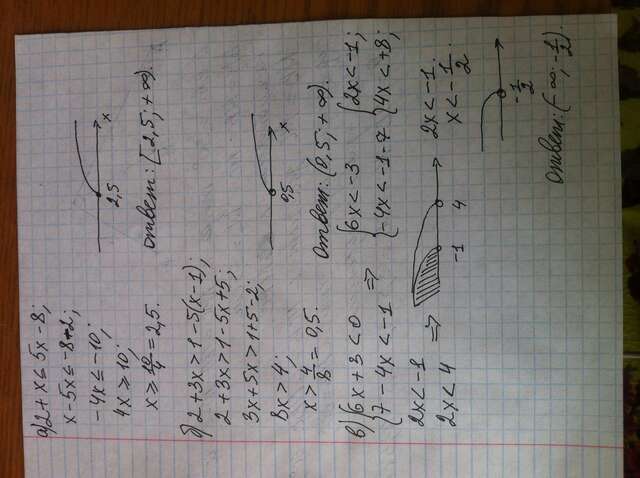 а) 2 + x ≤ 5x - 8;
x - 5x ≤ -8 - 2;
-4x ≤ -10;
4x ≥ 10;
x ≥ 10/4 = 2,5.
2,5 x
ответ: [2,5; +∞).
б) 2 + 3x > 1 - 5(x - 1);
2 + 3x > 1 - 5x + 5;
3x + 5x > 1 + 5 - 2;
8x > 4;
x > 4/8 = 0,5.
0,5 x
ответ: (0,5; +∞).
в) { 6x + 3 < 0 ⇒ { 6x < -3 { 2x < -1;
{ 7 - 4x < -1 { -4x < -1 - 7 { 4x < +8;
2x < -1
2x < 4 ⇒
-1 4
2x < -1.
x < -1/2.
-1/2
ответ: (-∞; -1/2).